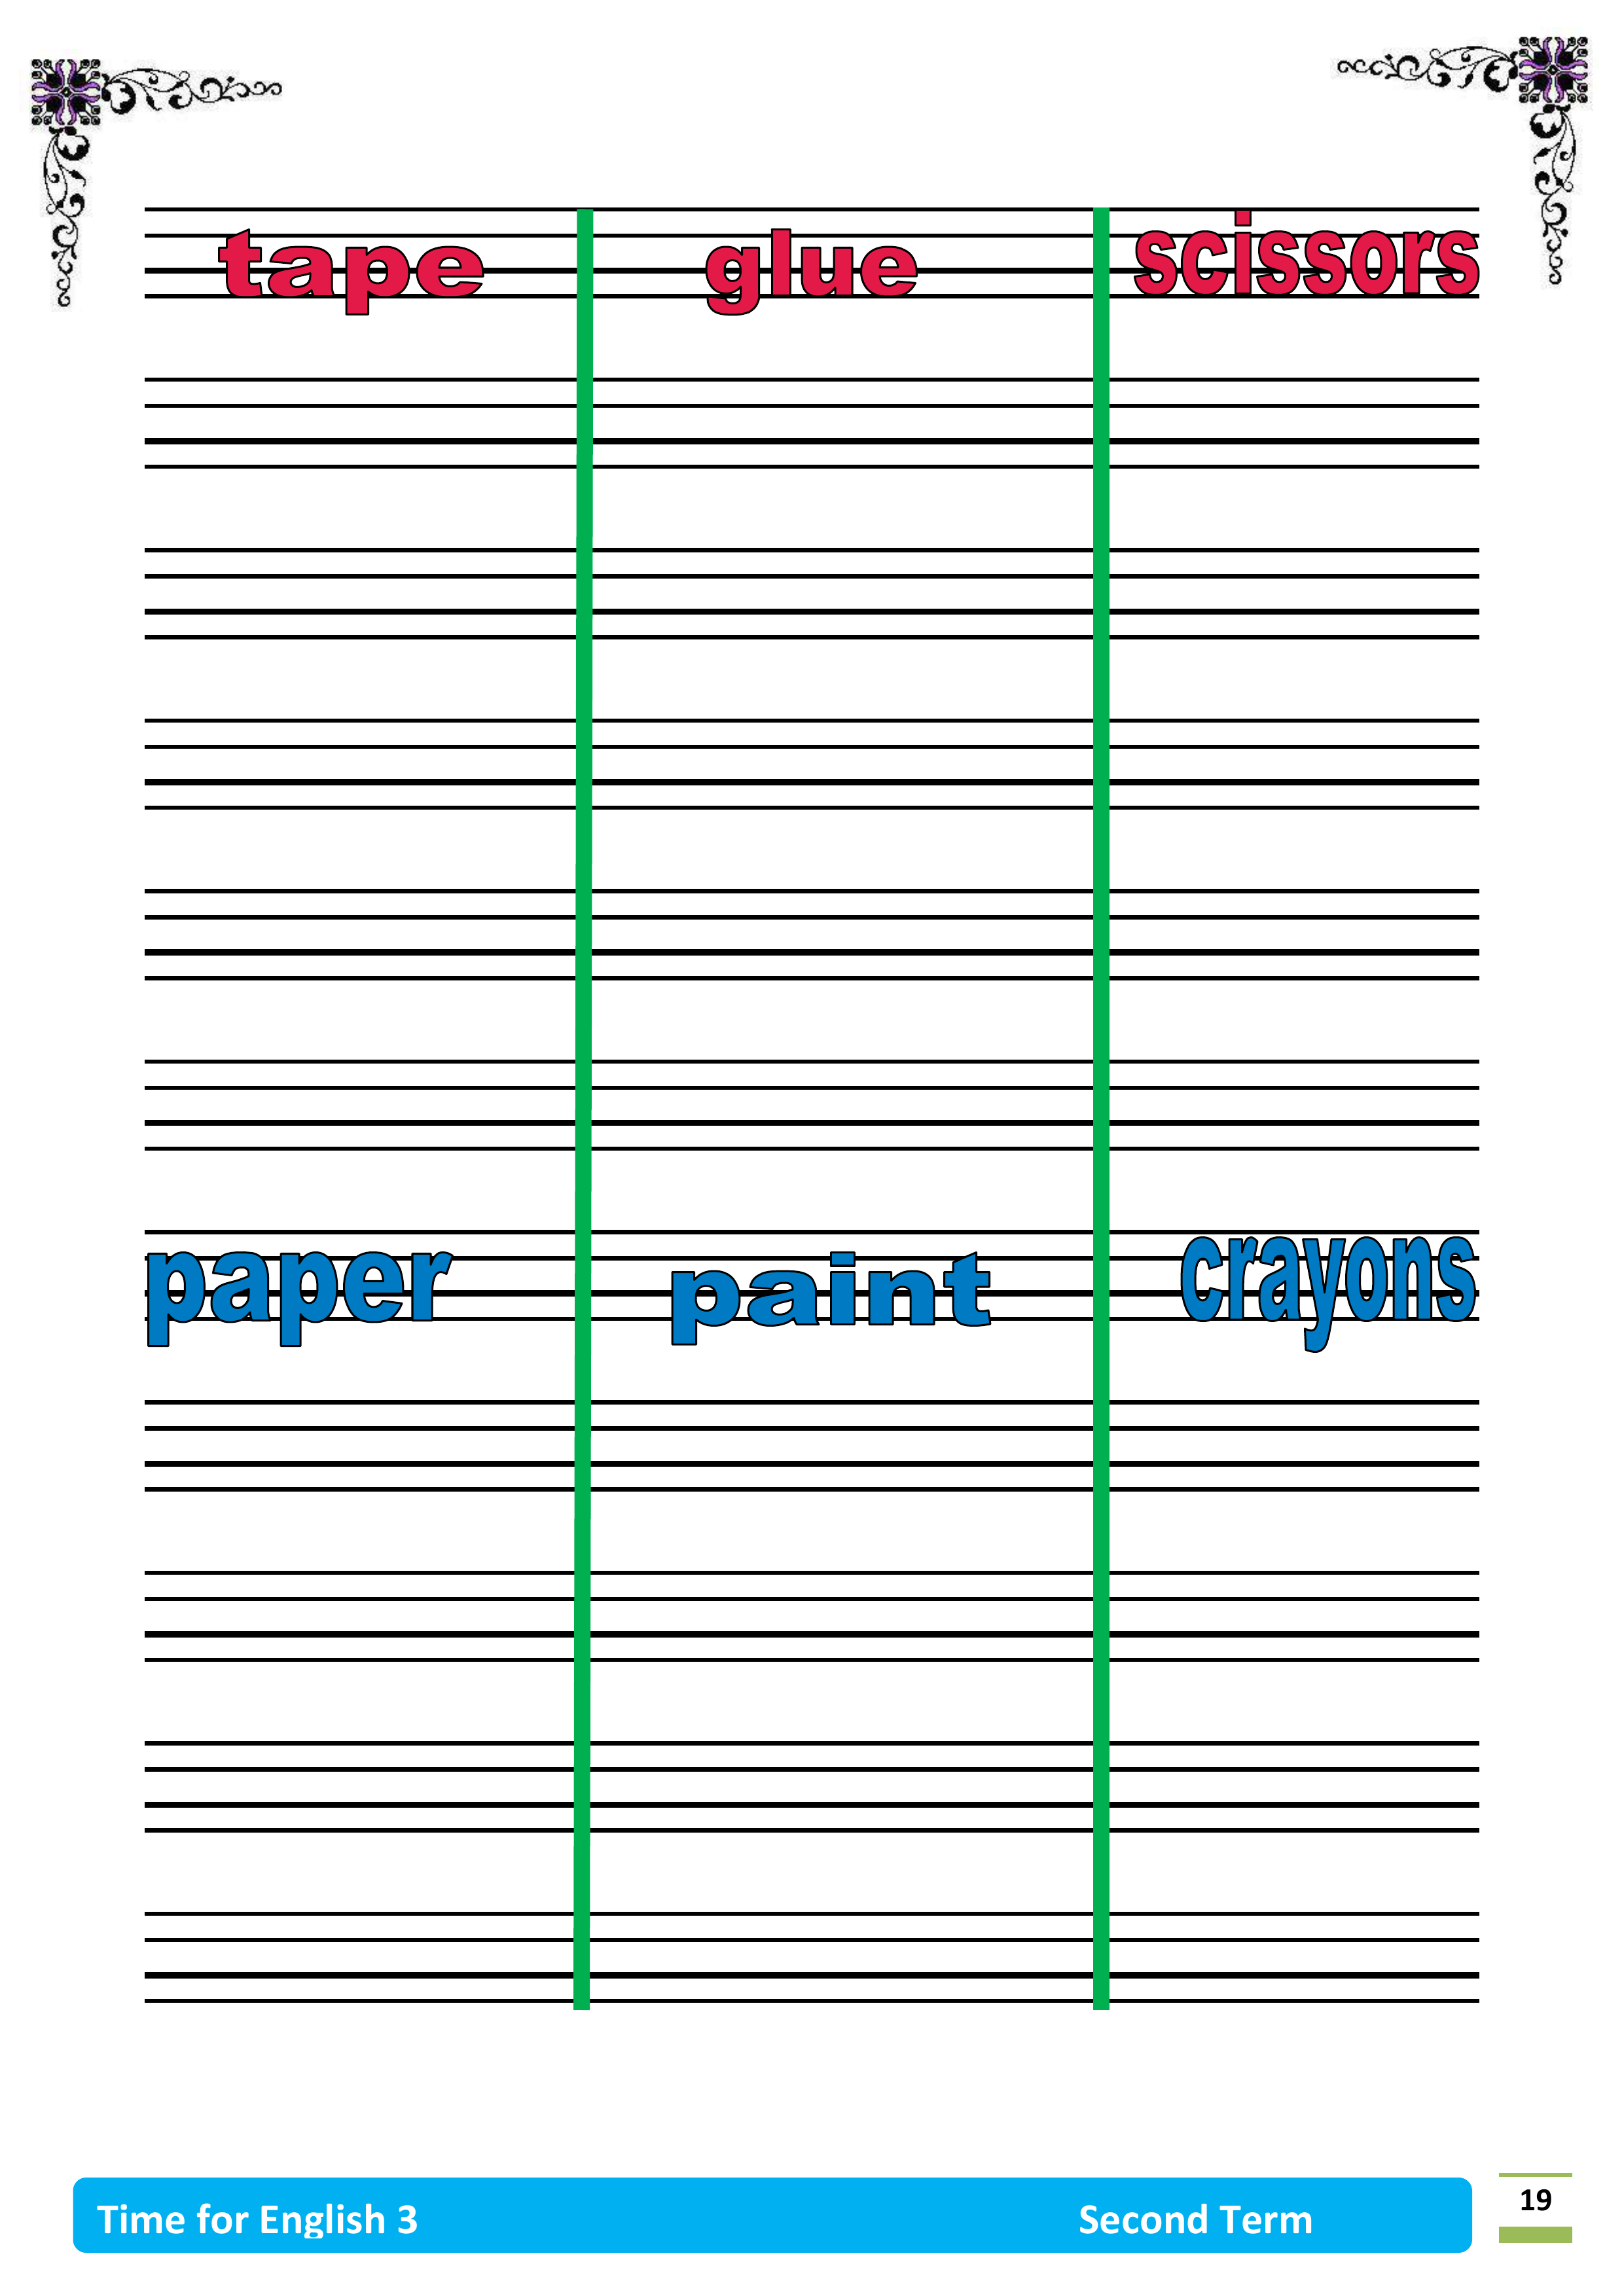 tape glue scissors
paper paint crayons
Time for English 3 Second Term 19